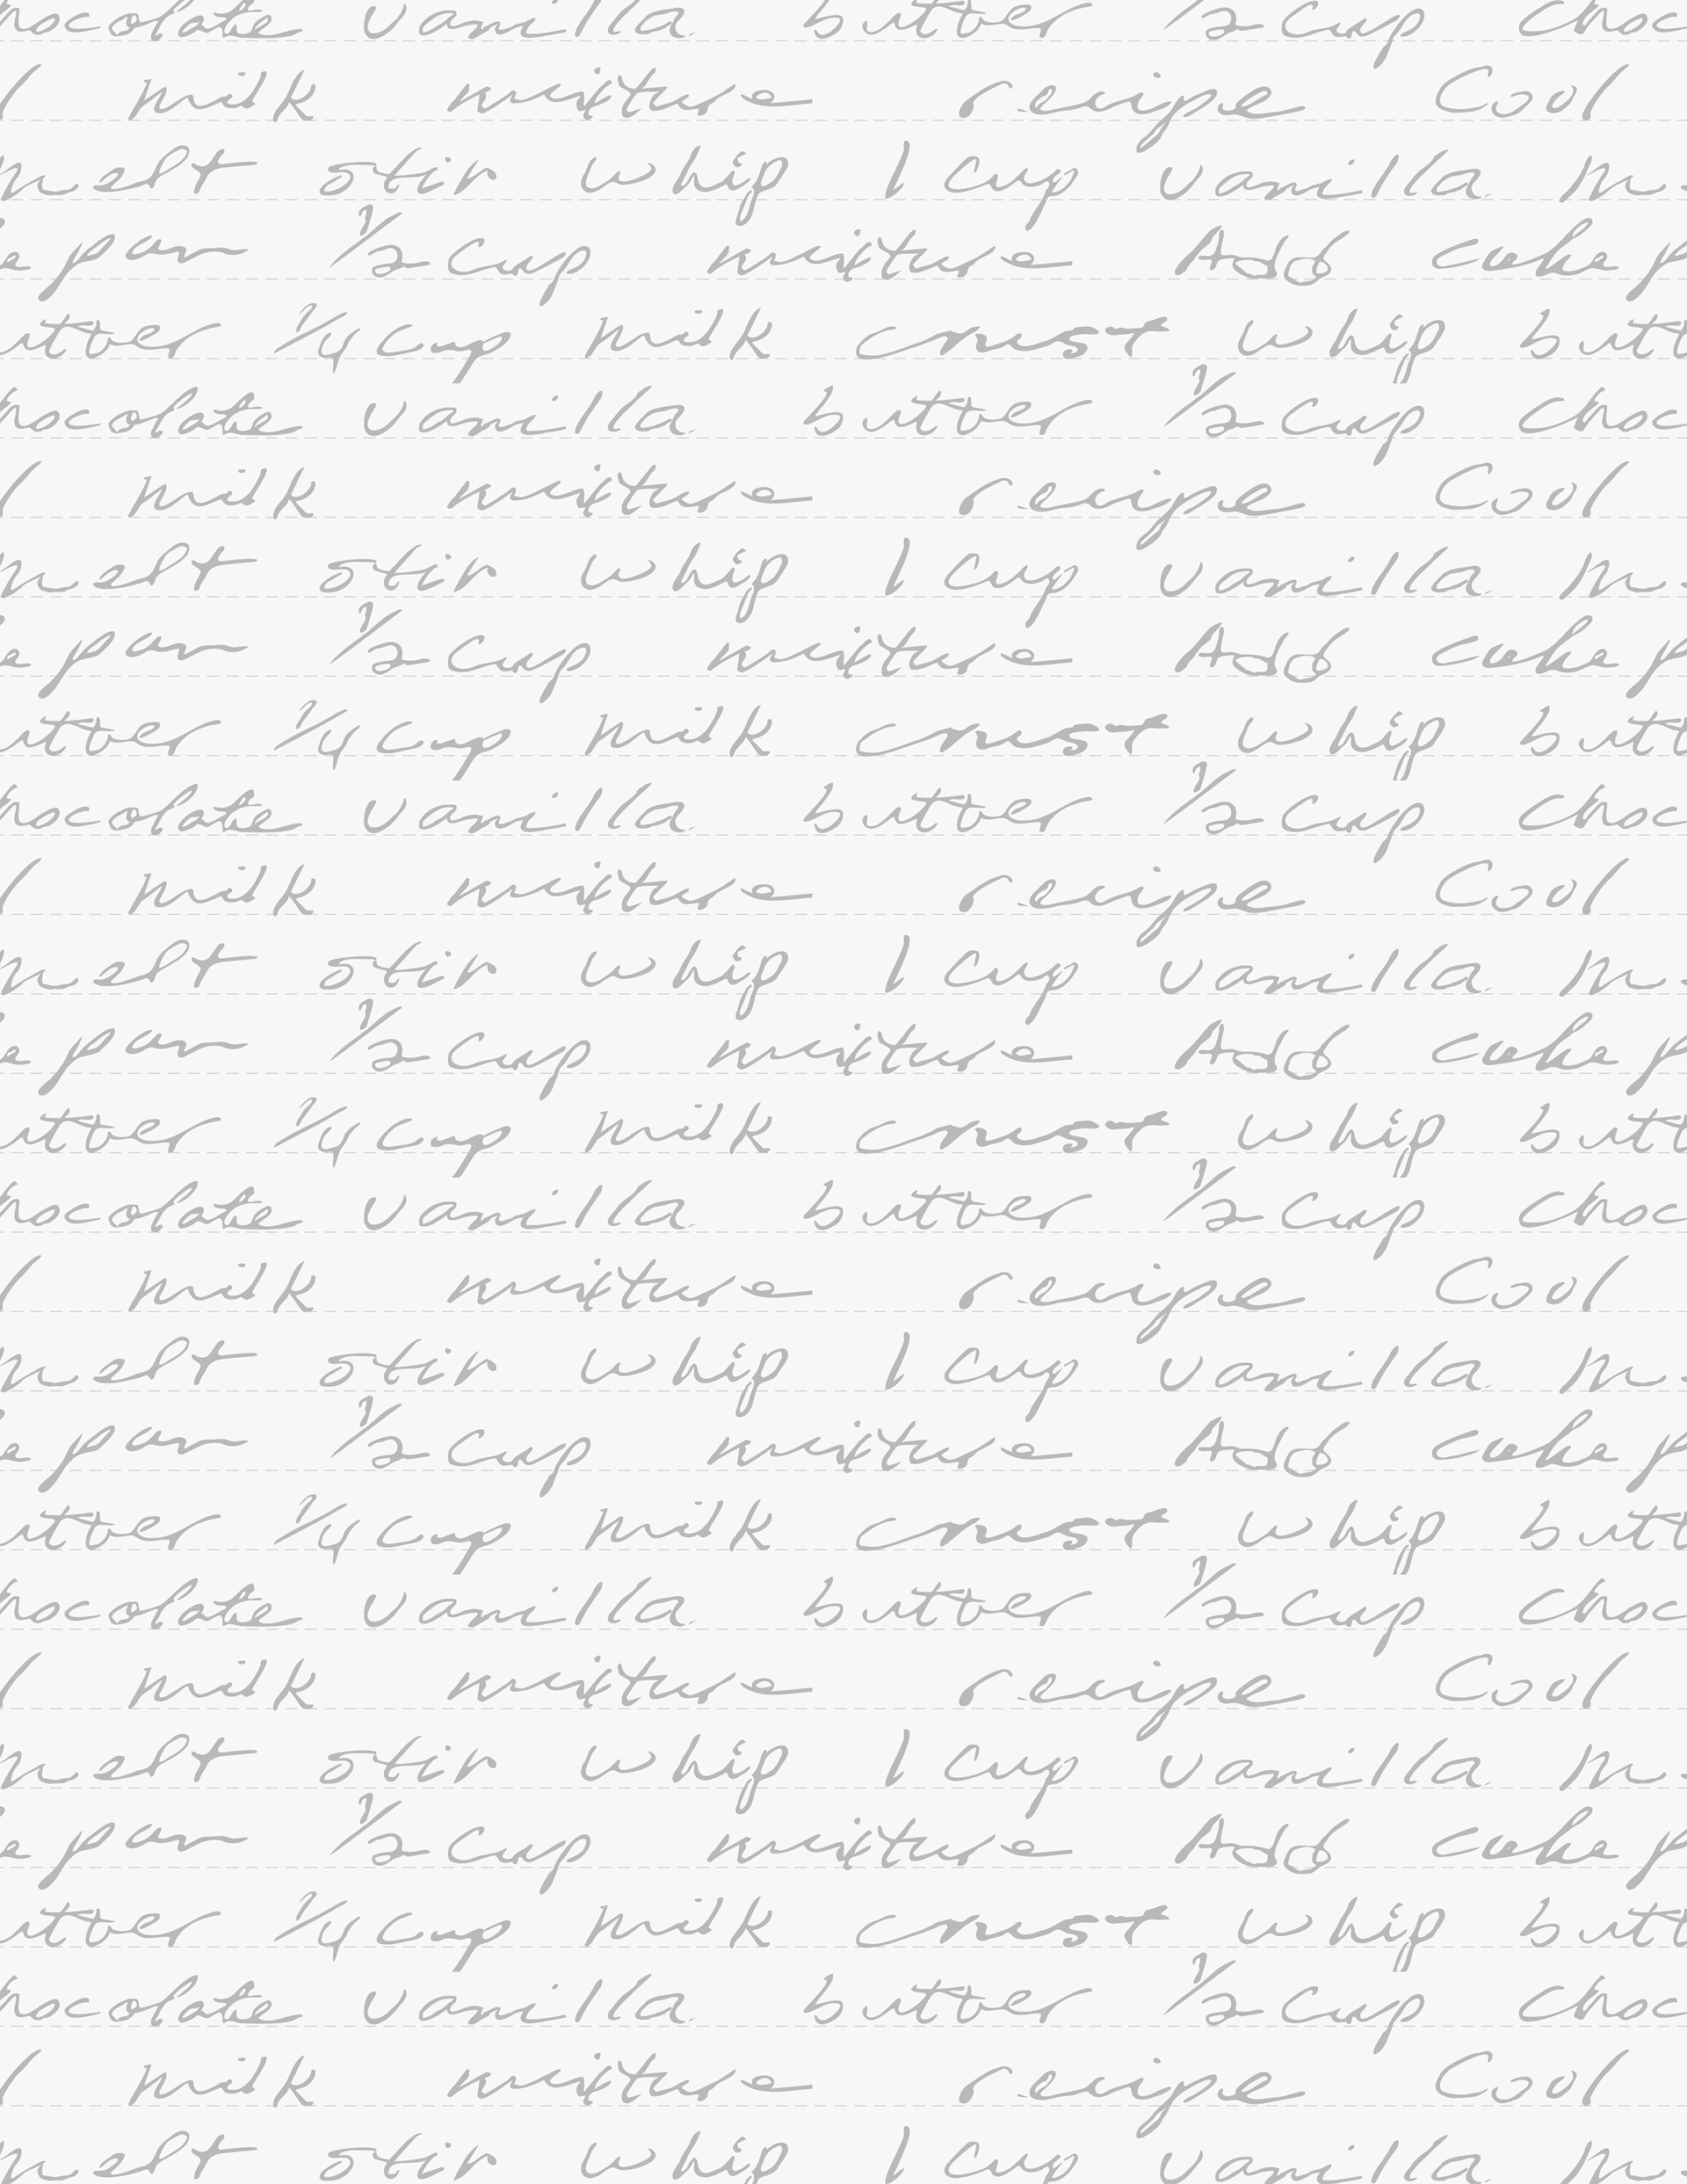 hocolate vanilla butter 1/2 cup choc
l milk mixture recipe Cool
melt stir whip 1 cup vanilla m
e pan 1/2 cup mixture Add cake p
utter 1/4 cup milk crust whip butt
hocolate vanilla butter 1/2 cup choc
l milk mixture recipe Cool
melt stir whip 1 cup vanilla m
e pan 1/2 cup mixture Add cake p
utter 1/4 cup milk crust whip butt
hocolate vanilla butter 1/2 cup choc
l milk mixture recipe Cool
melt stir whip 1 cup vanilla m
e pan 1/2 cup mixture Add cake p
utter 1/4 cup milk crust whip butt
hocolate vanilla butter 1/2 cup choc
l milk mixture recipe Cool
melt stir whip 1 cup vanilla m
e pan 1/2 cup mixture Add cake p
utter 1/4 cup milk crust whip butt
hocolate vanilla butter 1/2 cup choc
l milk mixture recipe Cool
melt stir whip 1 cup vanilla m
e pan 1/2 cup mixture Add cake p
utter 1/4 cup milk crust whip butt
hocolate vanilla butter 1/2 cup choc
l milk mixture recipe Cool
melt stir whip 1 cup vanilla m